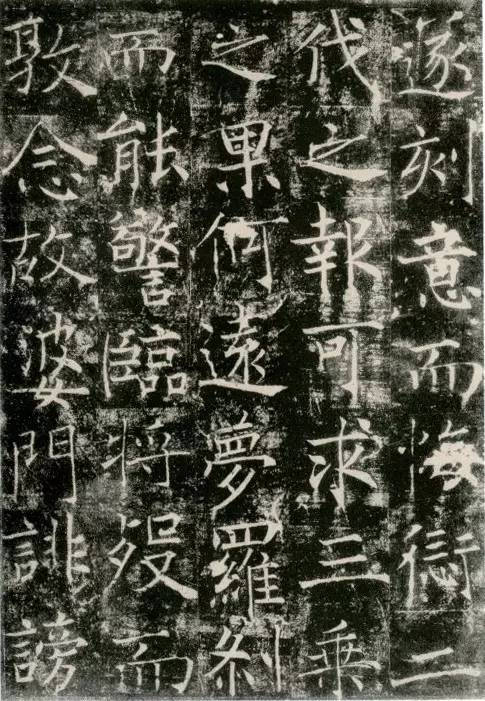 遂刻意而悔愆二
伐之報可求三乘
之果何遠夢羅刹
而能警臨将歿而
敦念故婆門誹謗